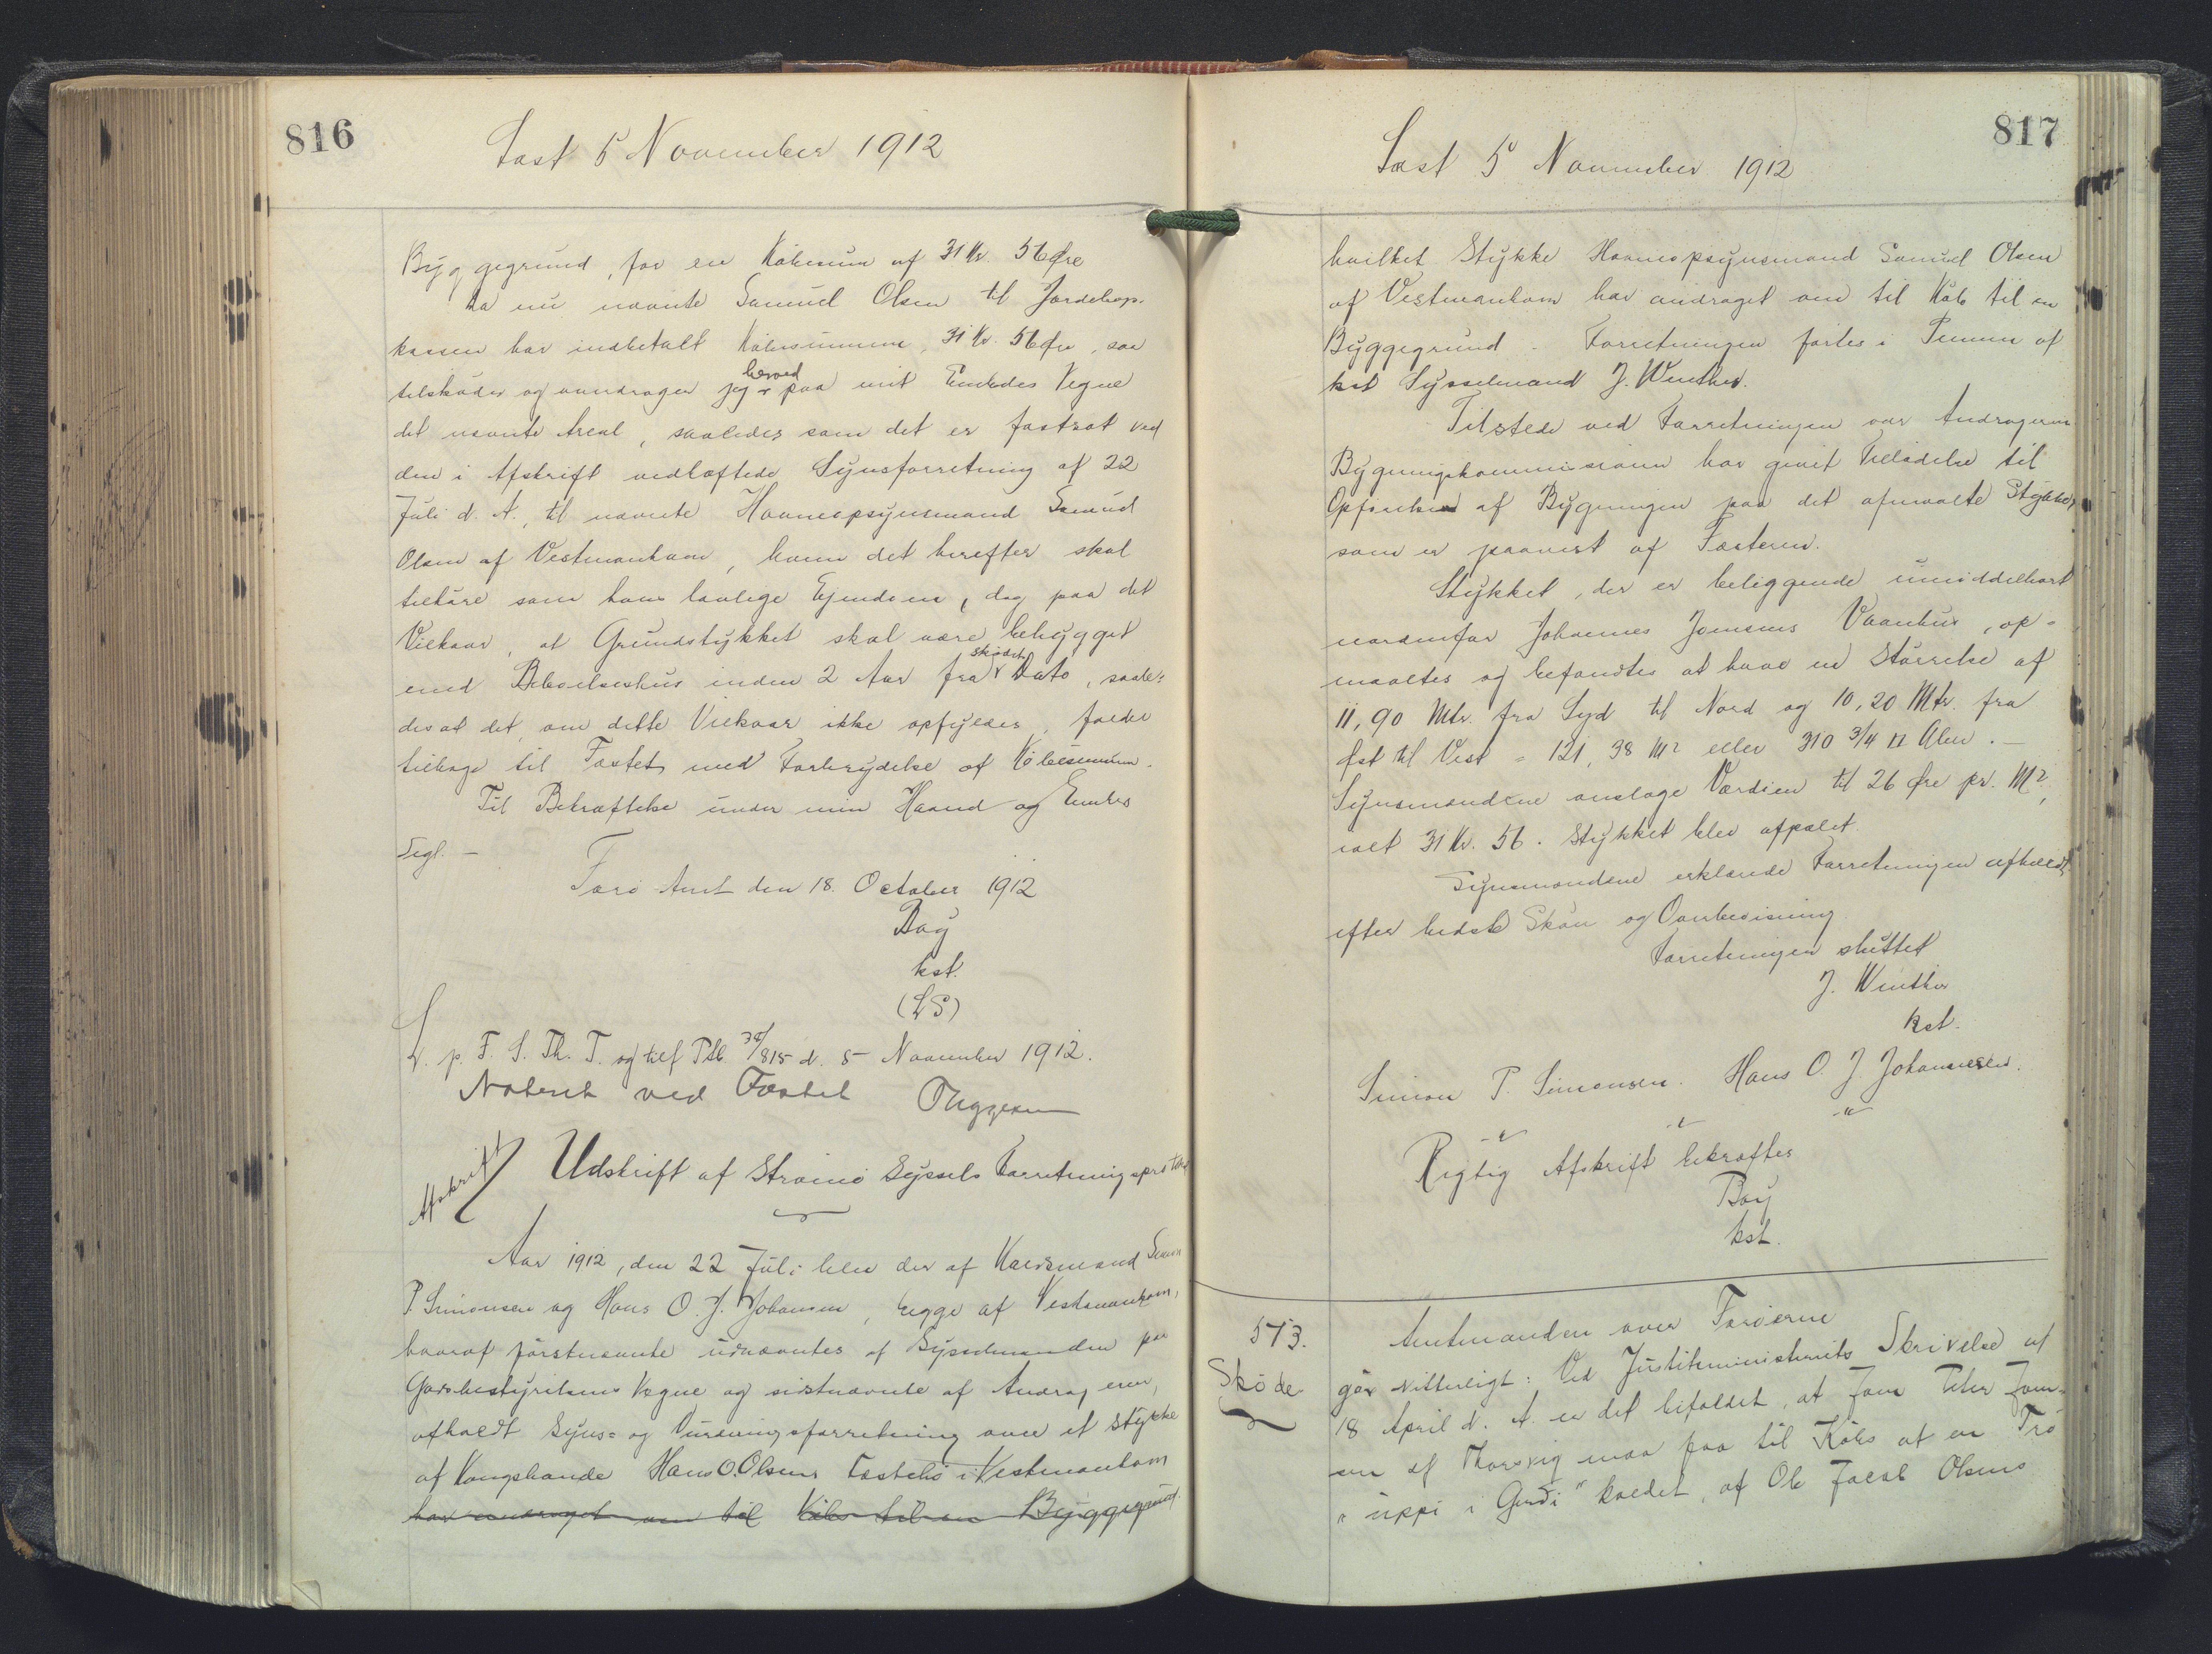 816
Læst 5 November 1912
Byggegrund, for en Købesum af 31 Kr. 56 Øre
Da nu nævnte Samuel Olsen til Jordebogs-
kassen har indbetalt Købesummen, 31 Kr. 56 Øre, saa
tilskøder og overdrager jeg herved paa mit Embedes Vegne
det nævnte Areal, saaledes som det er fastsat ved
den i Afskrift vedhæftede Synsforretning af 22
Juli d. A., til nævnte Havneopsynsmand Samuel
Olsen af Vestmanhavn, hvem det herefter skal
tilhøre som hans lovlige Ejendom, dog paa det
Vilkaar, at Grundstykket skal være bebygget
med Beboelseshus inden 2 Aar fra skødets Dato, saale-
des at det, om dette Vilkaar ikke opfyldes, falder
tilbage til Fæstet med Forbrydelse af Købesummen.
Til Bekræftelse under min Haand og Embeds
Segl. —
Færø Amt den 18. October 1912
Bay
kst.
(LS)
L. p. F. S. Th. T. og tilf Ptb. 38/815 d. 5 November 1912.
Noteret ved Fæstet Thygesen
Afskrift Udskrift af Strømø Syssels Forretningsprotok
Aar 1912, den 22 Juli blev der af Vardsmænd Simon
P. Simonsen og Hans O. J. Johansen, begge af Vestmanhavn,
hvoraf førstnævnte udnævntes af Sysselmanden paa
Godsbestyrelsens Vegne og sidstnævnte af Andrageren,
afholdt Syns- og Vurderingsforretning over et Stykke
af Kongsbonde Hans O. Olsens Fæstelod i Vestmanhavn
har andraget om til Købs til en Byggegrund.
817
Læst 5 November 1912
hvilket Stykke Havneopsynsmand Samuel Olsen
af Vestmanhavn har andraget om til Køb til en
Byggegrund. Forretningen førtes i Pennen af
kst Sysselmand J. Winther.
Tilstede ved Forretningen var Andrageren
Bygningskommissionen har givet Tilladelse til
Opførelsen af Bygningen paa det afmaalte Stykke,
som er paavist af Fæsteren.
Stykket, der er beliggende umiddelbart
nordenfor Johannes Joensens Vaanhus, op-
maaltes og befandtes at have en Størrelse af
11,90 Mtr. fra Syd til Nord og 10,20 Mtr. fra
Øst til Vest = 121,38 M² eller 310 3/4 □ Alen. —
Synsmændene anslage Værdien til 26 Øre pr. M²,
ialt 31 Kr. 56. Stykket blev afpælet.
Synsmændene erklærede Forretningen afholdt
efter bedste Skøn og Overbevisning
Forretningen sluttet
J. Winther
kst.
Simon P. Simonsen. Hans O. J. Johannesen.
Rigtig Afskrift bekræftes
Bay
kst.
573.
Skøde
Amtmanden over Færøerne
gør vitterligt: Ved Justitsministeriets Skrivelse af
18 April d. A. er det bifaldet, at Joen Peter Joen-
sen af Thorsvig maa faa til Købs af en Trø
"uppi i Gerði" kaldet, af Ole Jacob Olsens